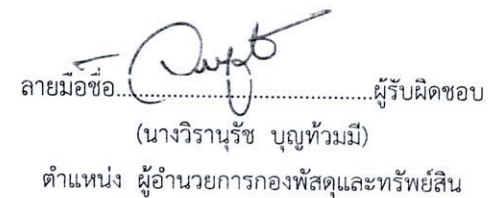 ลายมือชื่อ.......................................ผู้รับผิดชอบ
(นางวิรานุรัช บุญท้วมมี)
ตำแหน่ง ผู้อำนวยการกองพัสดุและทรัพย์สิน